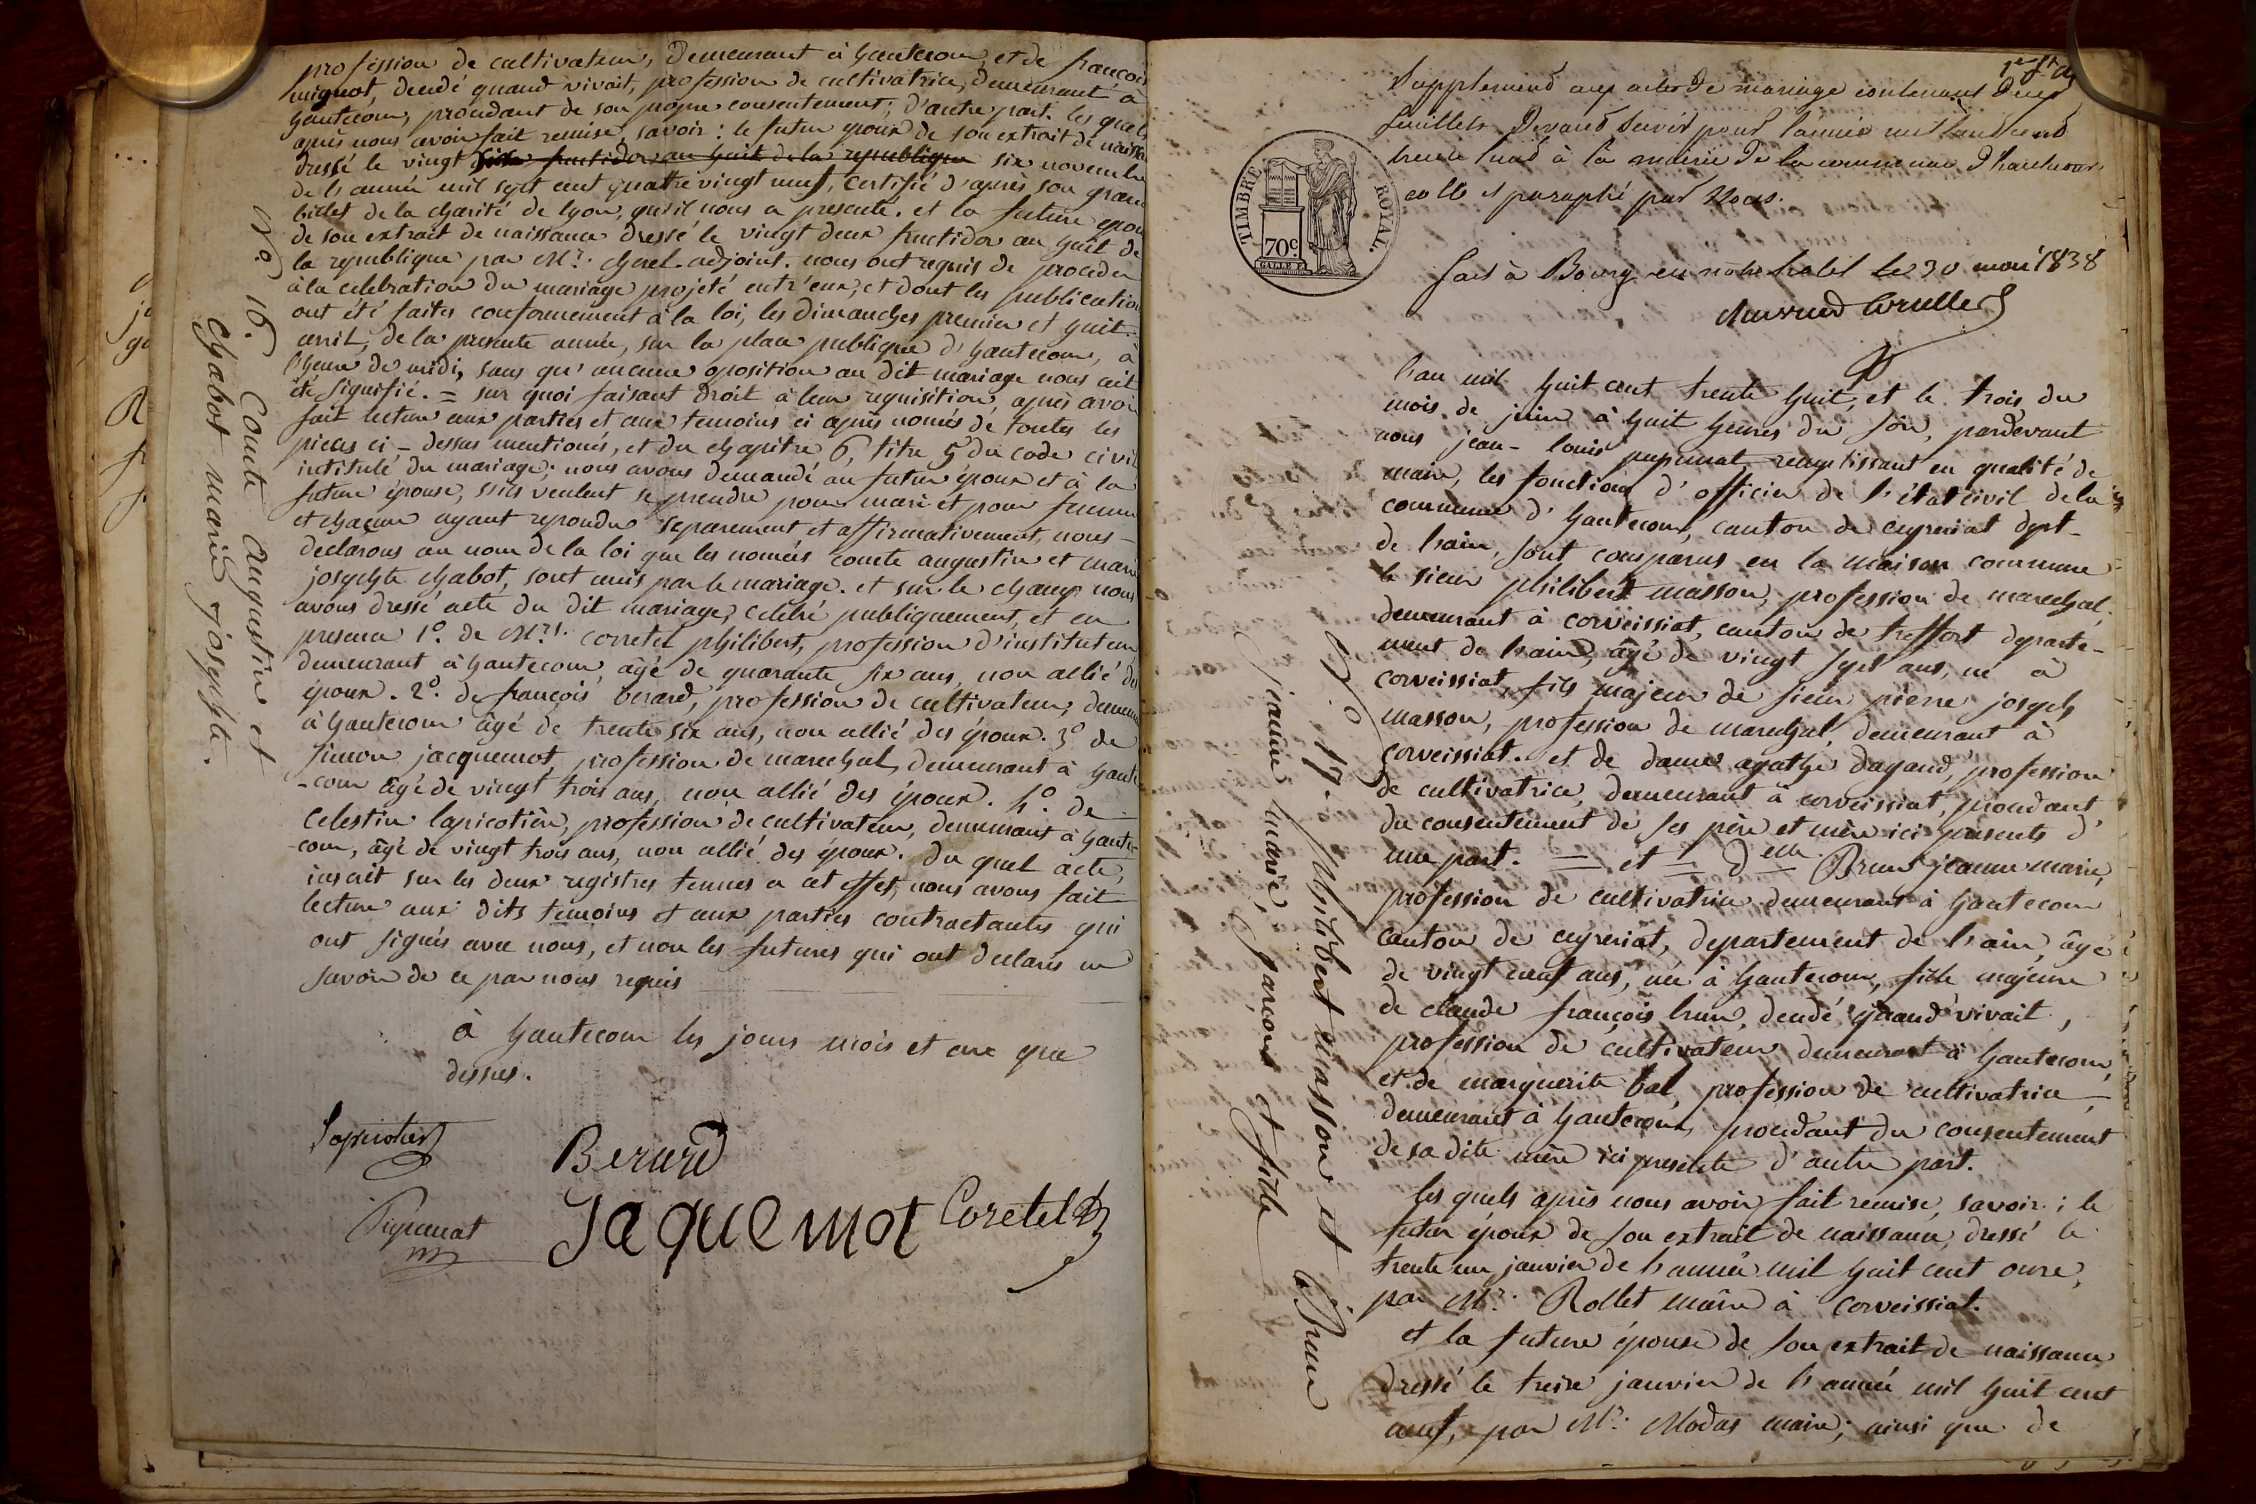 profession de cultivateur, demeurant à hautecour, et de françois
mignot, décdé quand vivait, profession de cultivatrice, demeurant à
hautecour, procédant de son propre consentement; d'autre part. les quels
après nous avoir fait remise, savoir: le futur époux de son extrait de naissa
dressé le vingt fructidor an huit de la republique six novembre
de l'année mil sept cent quatre vingt neuf, certifié d'après son grand
billet de la charité de lyon, qu'il nous a presenté. et la future épou
de son extrait de naissance dressé le vingt deux fructidor an huit de
la republique par Mr. chanel adjoint. nous ont requis de proceder
à la celebration du mariage projeté entr'eux, et dont les publication
ont été faites conformement à la loi, les dimanches premier et huit
avril, de la presente année, sur la place publique d'hautecour, à
l'heure de midi, sans qu'aucune oposition au dit mariage nous ait
été signifié. = sur quoi faisant droit à leur requisition, après avoir
fait lecture aux parties et aux temoins ci après només de toutes les
pieces ci-dessus mentionés, et du chapitre 6, titre 5 du code civil
intitulé du mariage; nous avons demandé au futur époux et à la
future épouse, s'ils veulent se prendre pour mari et pour femme
et chacun ayant repondu separement et affirmativement, nous
declarons au nom de la loi que les només comte augustin et marie
josephte chabot, sont unis par le mariage. et sur le champ nous
avons dressé acte du dit mariage, celebré publiquement, et en
presence 1o. de Mrs. corretel philibert, profession d'instituteur
demeurant à hautecour, âgé de quarante six ans, non allié des
époux. 2o. de françois berard, profession de cultivateur, demeura
à hautecour âgé de trente six ans, non allié des époux. 3o de
simon jacquemot, profession de marechal, demeurant à haute
-cour âgé de vingt trois ans, non allié des époux. 4o. de
Celestin lapicotière, profession de cultivateur, demeurant à haute-
-cour, âgé de vingt trois ans, non allié des époux. du quel acte,
inscrit sur les deux registres tennus a cet effet, nous avons fait
lecture aux dits temoins et aux parties contractantes qui
ont signés avec nous, et non les futures qui ont declarés ne
savoir de ce par nous requis
à hautecour les jours mois et an que
dessus.
Berard
Piquenat
Jaquemot
Coretel
No. 16. Comte Augustin et
Chabot marie josephte.
Supplement aux actes de mariage contenant deux
feuillets devant servir pour l'année mil huit cent
trente huit à la mairie de la commune d'hautecour
coté et paraphé par Nous.
TIMBRE ROYAL
70c.
fait à Bourg en notre hotel le 30 mai 1838
l'an mil huit cent trente huit, et le trois du
mois de juin à huit heures du soir, pardevant
nous jean-louis piquenat remplissant en qualité de
maire, les fonctions d'officier de l'état civil de la
commune d'hautecour, canton de ceyzeriat dept-
de l'ain, sont comparus en la maison commune
le sieur philibert masson, profession de marechal
demeurant à corveissiat, canton de treffort departe-
ment de l'ain, âgé de vingt sept ans, né à
corveissiat, fils majeur de sieur pierre joseph
masson, profession de marechal demeurant à
corveissiat. et de dame agathe dagaud, profession
de cultivatrice, demeurant à corveissiat, procédant
du consentement de ses père et mère ici presents d'
une part. = et = Delle Brun jeanne marie,
profession de cultivatrice demeurant à hautecour
canton de ceyzeriat, departement de l'ain, âgé
de vingt neuf ans, née à hautecour, fille majeure
de claude françois brun, décdé, quand vivait,
profession de cultivateur demeurant à hautecour,
et de marguerite bal, profession de cultivatrice
demeurant à hautecour, procédant du consentement
de sa dite mère ici presente d'autre part.
les quels après nous avoir fait remise, savoir: le
futur époux de son extrait de naissance, dressé le
trente un janvier de l'année mil huit cent onze,
par Mr. Rollet maire à corveissiat.
et la future épouse de son extrait de naissance
dressé le treize janvier de l'année mil huit cent
neuf, par Mr. Modas maire; ainsi que de
No. 17. philibert masson et Brun
jeanne marie, garçon et fille